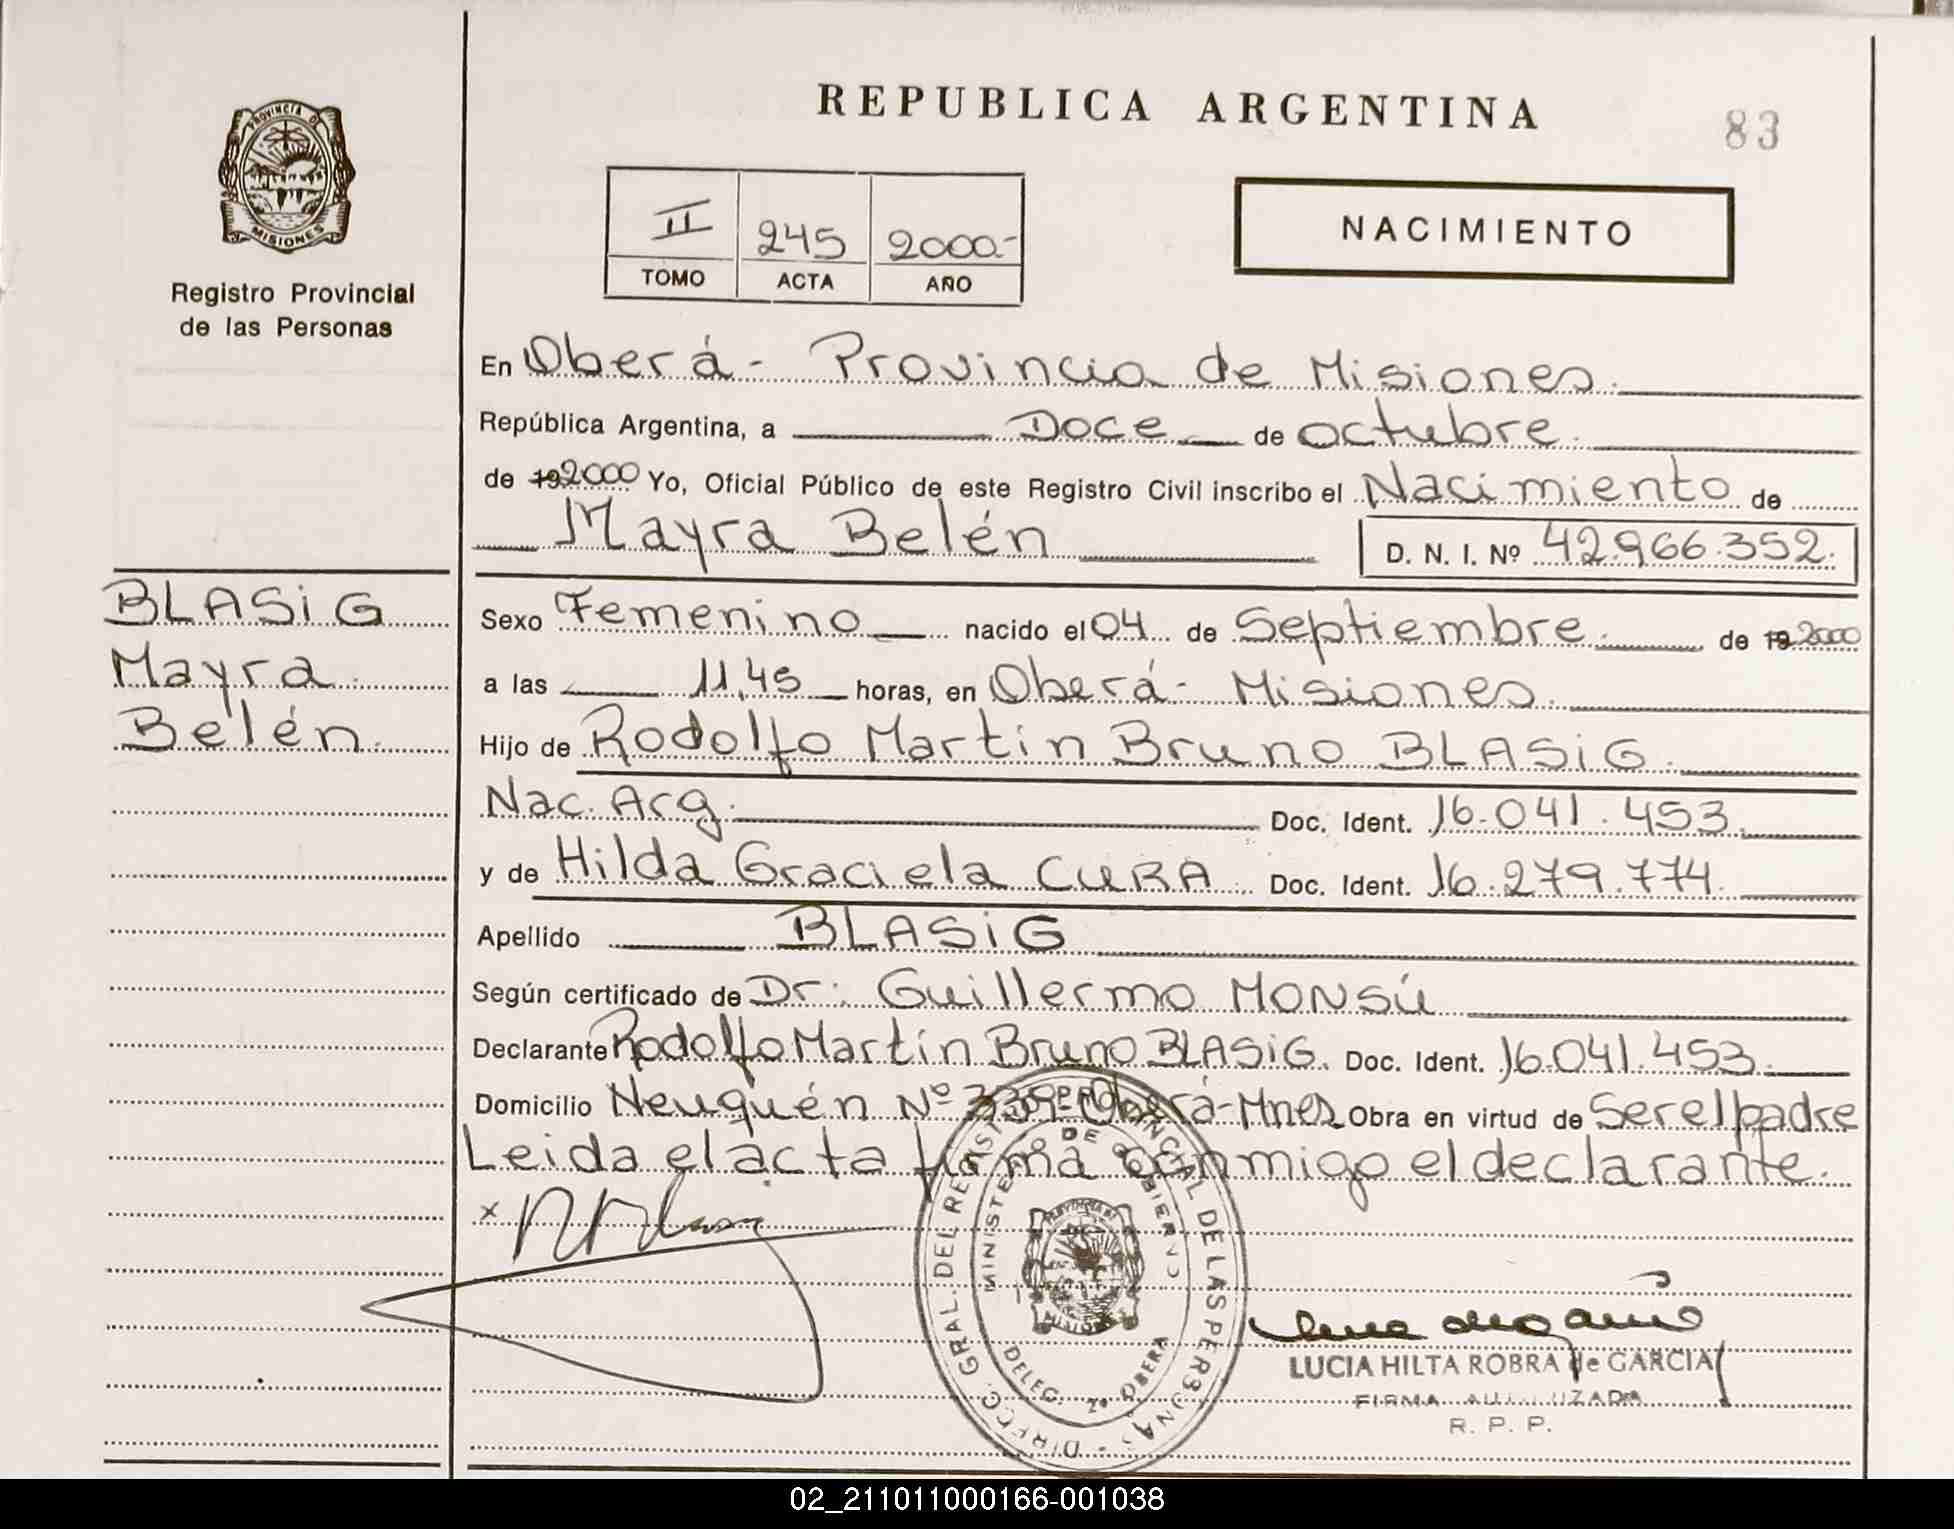 REPUBLICA ARGENTINA
83
PROVINCIA DE
MISIONES
Registro Provincial
de las Personas
II 245 2000.-
TOMO ACTA AÑO
NACIMIENTO
En Oberá - Provincia de Misiones.
República Argentina, a Doce de octubre.
de 192000 Yo, Oficial Público de este Registro Civil inscribo el Nacimiento de
Mayra Belén D. N. I. Nº 42.966.352.
BLASiG
Mayra
Belén.
Sexo Femenino nacido el 04 de Septiembre. de 19 2000
a las 11,45 horas, en Oberá - Misiones.
Hijo de Rodolfo Martín Bruno BLASiG.
Nac. Arg. Doc. Ident. 16.041.453.
y de Hilda Graciela CURA Doc. Ident. 16.279.774.
Apellido BLASiG
Según certificado de Dr. Guillermo MONSÚ
Declarante Rodolfo Martín Bruno BLASiG. Doc. Ident. 16.041.453.
Domicilio Neuquén Nº 339 Oberá - Mnes Obra en virtud de Ser el padre
Leida el acta firma conmigo el declarante.
x
DIRECC. GRAL. DEL REGISTRO PROVINCIAL DE LAS PERSONAS
MINISTERIO DE GOBIERNO
DELEG. 2ª OBERA
LUCIA HILTA ROBRA de GARCIA
FIRMA AUTORIZADA
R. P. P.
02_211011000166-001038